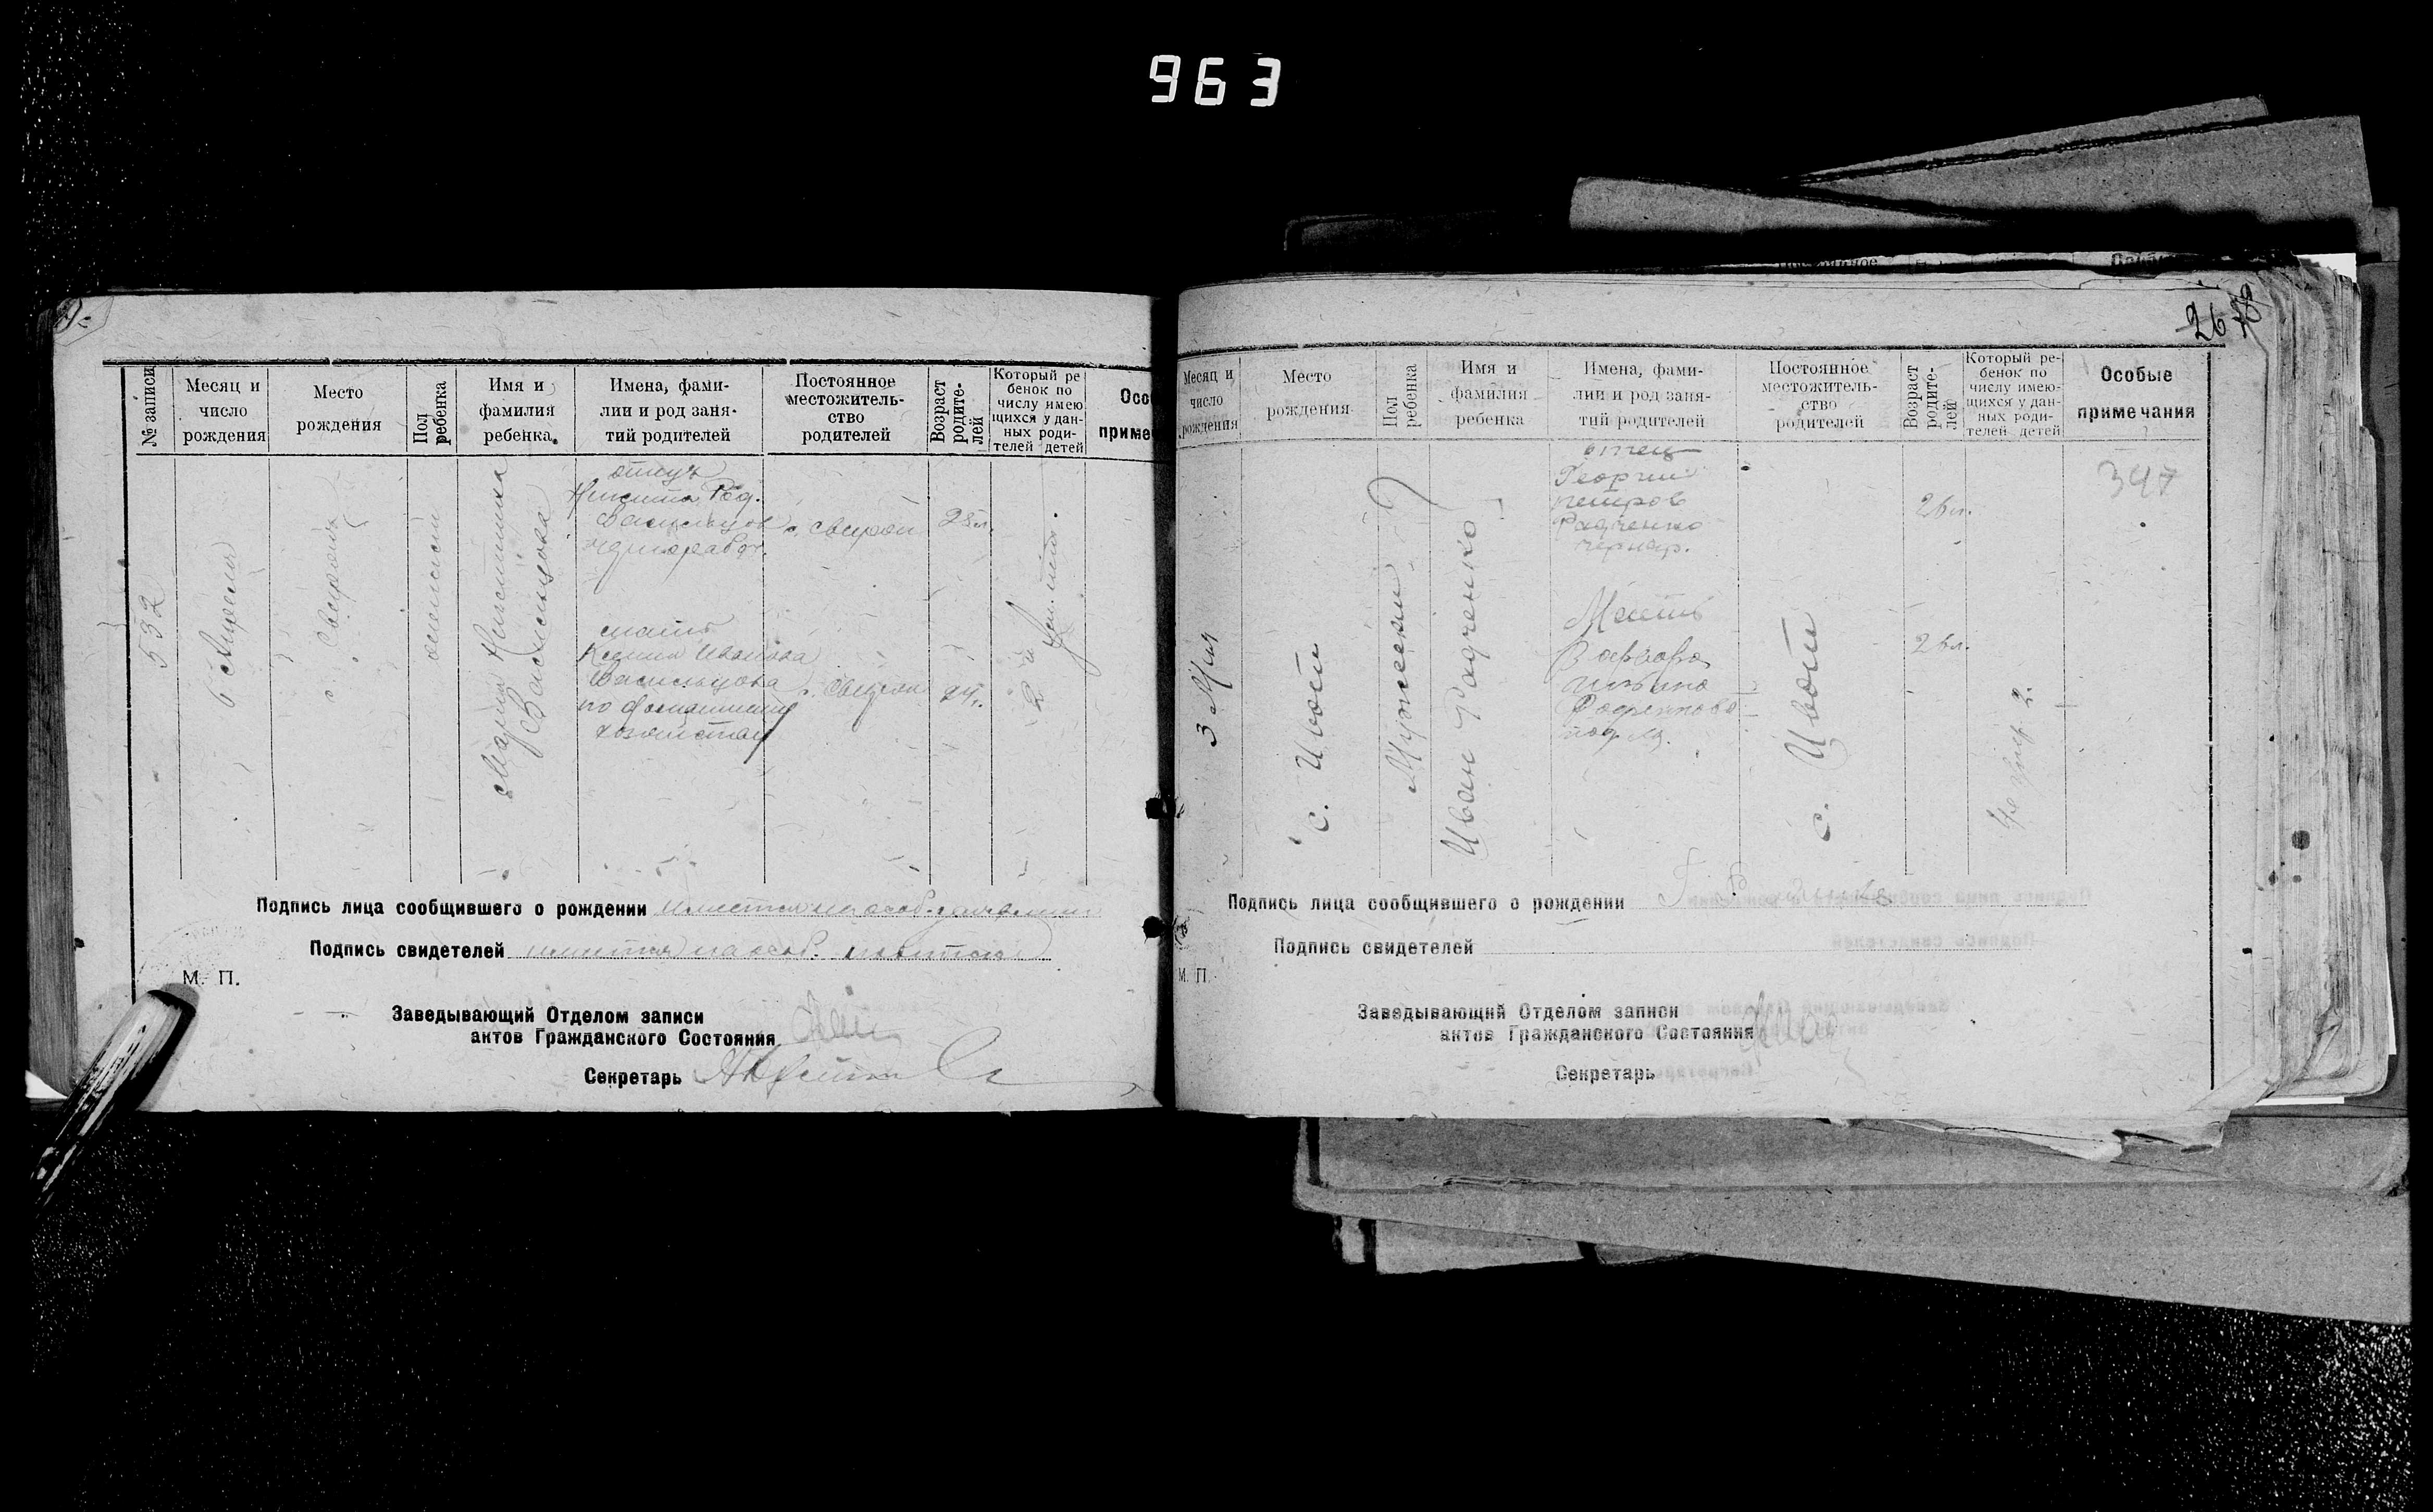 963
№ записи
Месяц и
число
рождения
Место
рождения
Пол
ребенка
Имя и
фамилия
ребенка
Имена, фами-
лии и род заня-
тий родителей
Постоянное
местожитель-
ство
родителей
Возраст
родите-
лей
Который ре
бенок по
числу имею
щихся у дан-
ных роди-
телей детей
Осо
приме
532
6 Апреля
с.
женский
Мария Никитина
Васильцова
отец
Никита Род.
Васильцов
чернорабоч.
28 л.
мать
Ксения Иванова
Васильцова
по домашнему
хозяйству
24 л.
2 й
Подпись лица сообщившего о рождении имеется на особ.
Подпись свидетелей имеется на особ.
М. П.
Заведывающий Отделом записи
актов Гражданского Состояния
Секретарь
26
Месяц и
число
рождения
Место
рождения
Пол
ребенка
Имя и
фамилия
ребенка
Имена, фами-
лии и род заня-
тий родителей
Постоянное
местожитель-
ство
родителей
Возраст
родите-
лей
Который ре-
бенок по
числу имею-
щихся у дан-
ных роди-
телей детей
Особые
примечания
3 Мая
с. Ивот
Мужской
Иван Радченко
отец
Георгий
Петров
Радченко
чернор.
Мать
Варвара
с. Ивот
26 л.
26 л.
2.
347
Подпись лица сообщившего о рождении
Подпись свидетелей
М. П.
Заведывающий Отделом записи
актов Гражданского Состояния
Секретарь